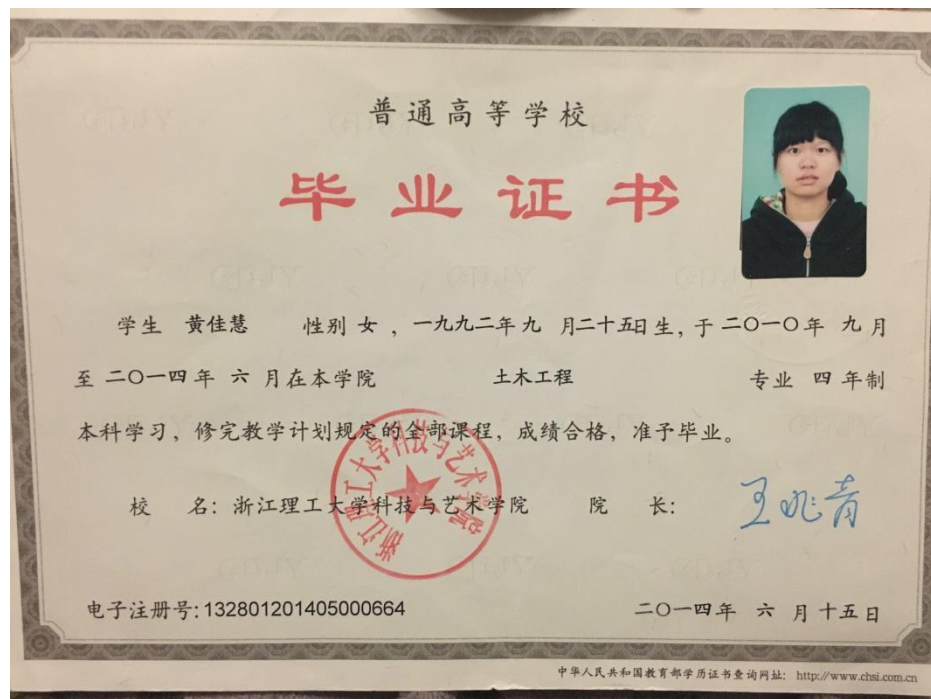 普通高等学校
毕业证书
学生 黄佳慧 性别 女 ，一九九二年 九 月二十五日生，于 二〇一〇年 九月
至 二〇一四年 六 月在本学院 土木工程 专业 四 年制
本科学习，修完教学计划规定的全部课程，成绩合格，准予毕业。
浙江理工大学科技与艺术学院
校 名：浙江理工大学科技与艺术学院 院 长： 王兆青
电子注册号：132801201405000664 二〇一四年 六 月十五日
中华人民共和国教育部学历证书查询网址： http://www.chsi.com.cn